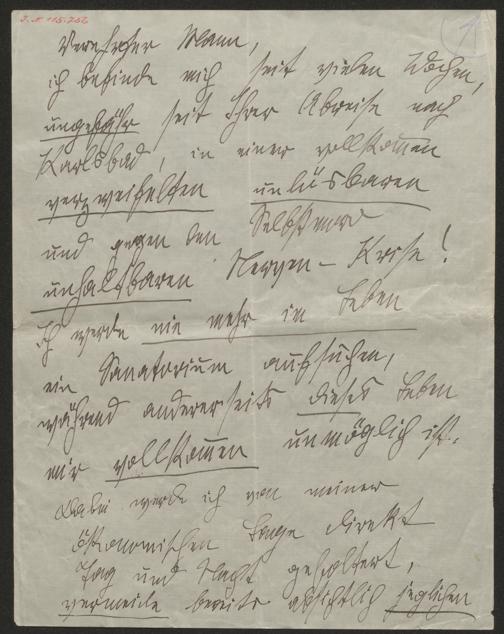 I.N. 115.752
1
Verehrter Mann,
ich befinde mich seit vielen Wochen,
ungefähr seit Ihrer Abreise nach
Karlsbad, in einer vollkom̄en
verzweifelten unlösbaren
und gegen den Selbstmord
unhaltbaren Nerven-Krise!
Ich werde nie mehr im Leben
ein Sanatorium aufsuchen,
während andererseits dieses Leben
mir vollkom̄en unmöglich ist.
Dabei werde ich von meiner
ökonomischen Lage direkt
Tag und Nacht gefoltert,
vermeide bereits absichtlich jeglichen